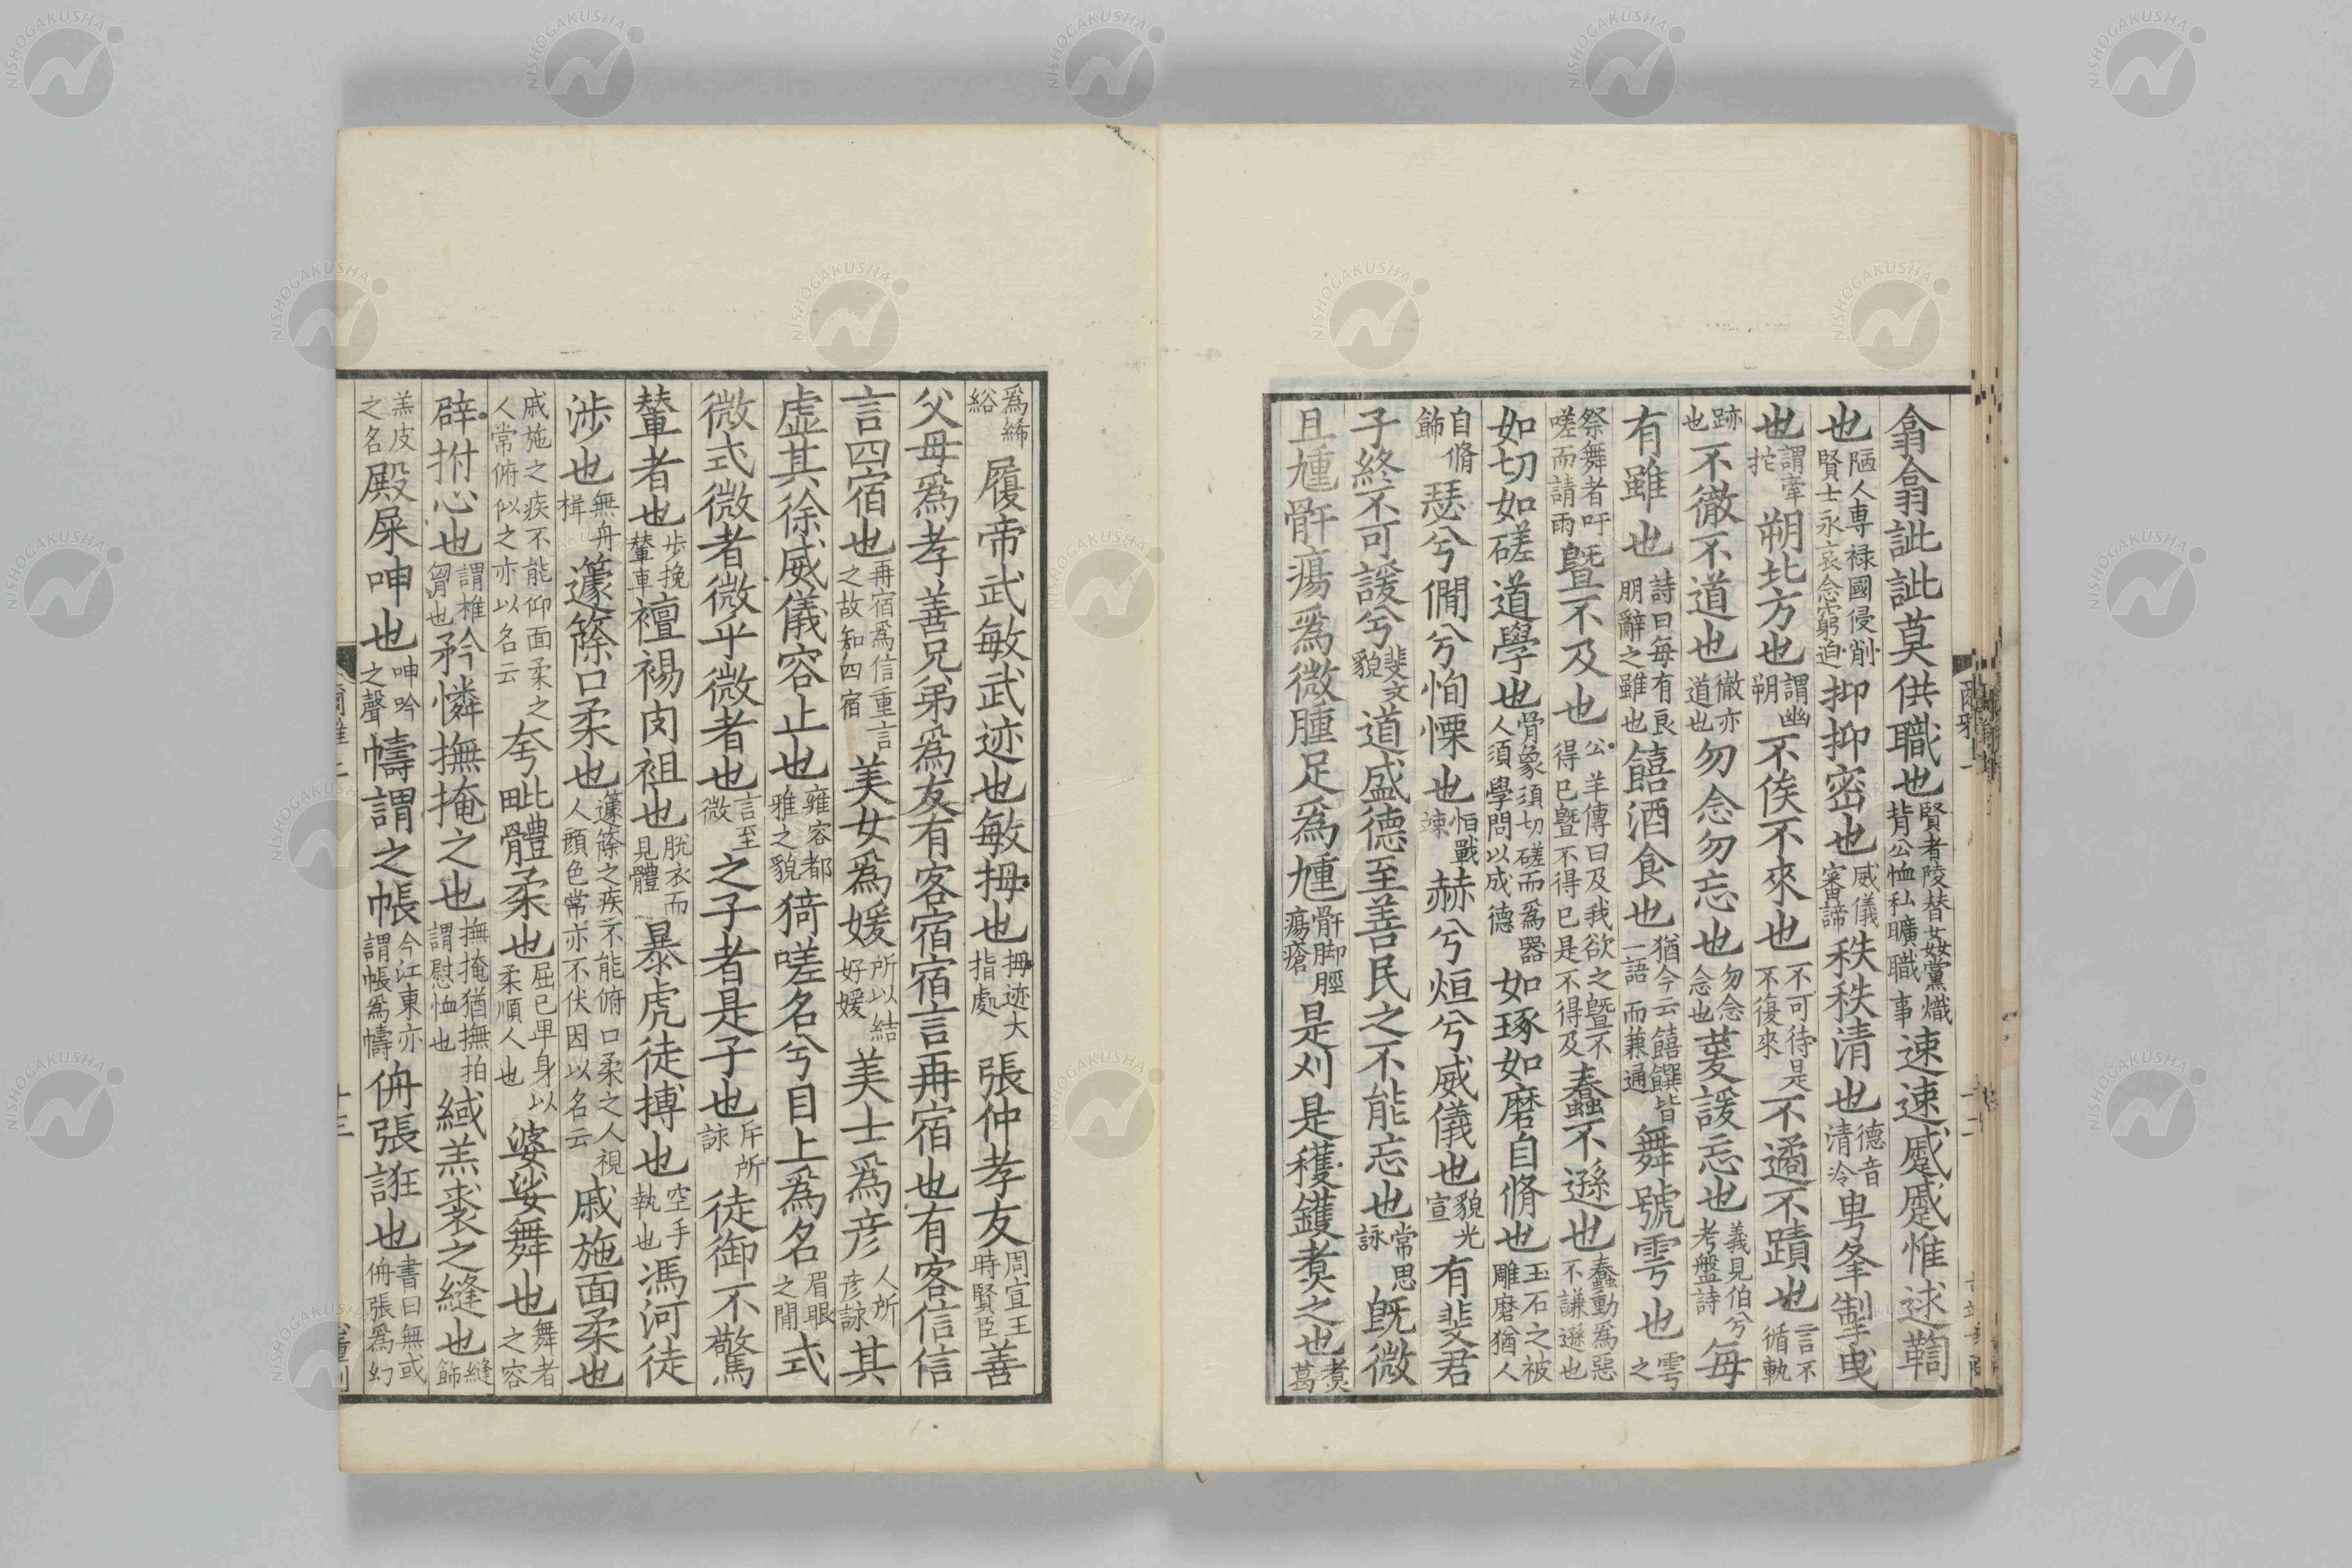 翕翕訿訿莫供職也賢者陵替姦黨熾背公恤私曠職事速速蹙蹙惟逑鞫
也陋人專禄國侵削賢士永哀念窮迫抑抑密也威儀審諦秩秩清也德音清泠甹夆掣曳
也謂牽拕朔北方也謂幽朔不俟不來也不可待是不復來不遹不蹟也言不循軌
跡也不徹不道也徹亦道也勿念勿忘也勿念念也萲諼忘也義見伯兮考盤詩每
有雖也詩曰每有良朋辭之雖也饎酒食也猶今云饎饌皆一語而兼通舞號雩也雩之
祭舞者吁嗟而請雨曁不及也公羊傳曰及我欲之曁不得已曁不得已是不得及蠢不遜也蠢動為惡不謙遜也
如切如磋道學也骨象須切磋而爲器人須學問以成德如琢如磨自脩也玉石之被雕磨猶人
自脩飾瑟兮僩兮恂慄也恒戰竦赫兮烜兮威儀也貌光宣有斐君
子終不可諼兮斐文貌道盛德至善民之不能忘也常思詠旣微
且尰骭瘍爲微腫足爲尰骭脚脛瘍瘡是刈是穫鑊煑之也煑葛
爲絺綌履帝武敏武迹也敏拇也拇迹大指處張仲孝友周宣王時賢臣善
父母爲孝善兄弟爲友有客宿宿言再宿也有客信信
言四宿也再宿爲信重言之故知四宿美女爲媛所以結好媛美士爲彦人所彦詠其
虚其徐威儀容止也雍容都雅之貌猗嗟名兮目上爲名眉眼之間式
微式微者微乎微者也言至微之子者是子也斥所詠徒御不驚
輦者也步挽輦車襢裼肉袒也脱衣而見體暴虎徒搏也空手執也馮河徒
涉也無舟楫籧篨口柔也籧篨之疾不能俯口柔之人視人顔色常亦不伏因以名云戚施面柔也
戚施之疾不能仰面柔之人常俯似之亦以名云夸毗體柔也屈己卑身以柔順人也婆娑舞也舞者之容
辟拊心也謂椎胷也矜憐撫掩之也撫掩猶撫拍謂慰恤也緎羔裘之縫也縫飾
羔皮之名殿屎呻也呻吟之聲幬謂之帳今江東亦謂帳爲幬侜張誑也書曰無或侜張爲幻